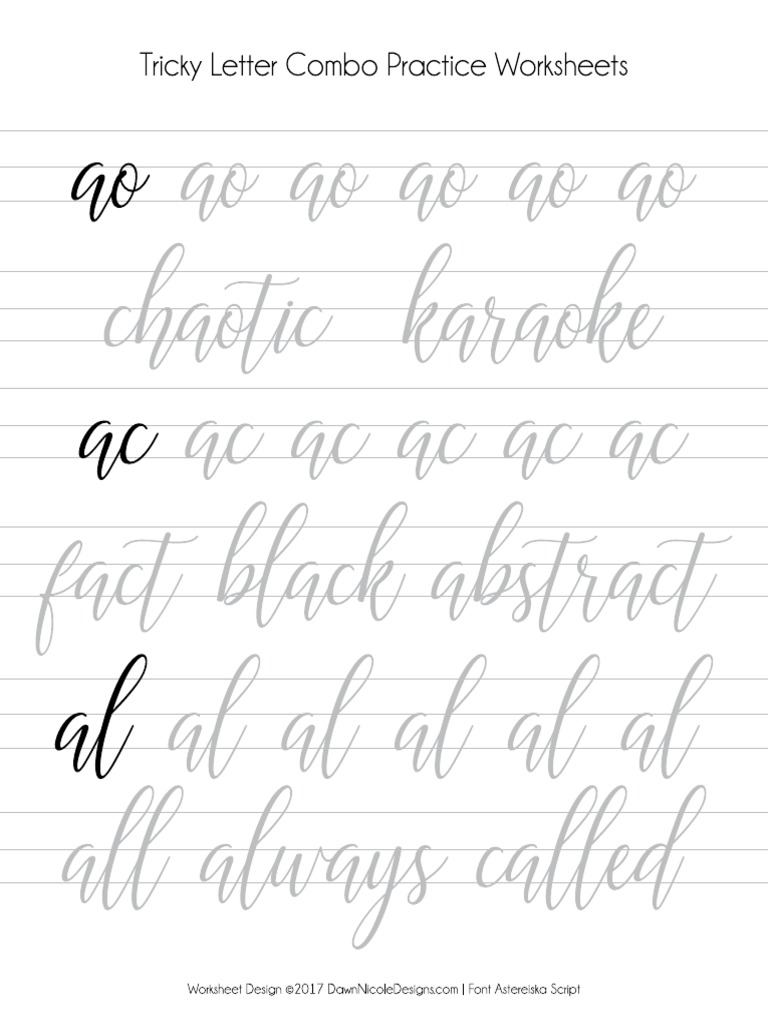 Tricky Letter Combo Practice Worksheets
ao ao ao ao ao ao
chaotic karaoke
ac ac ac ac ac ac
fact black abstract
al al al al al al
all always called
Worksheet Design ©2017 DawnNicoleDesigns.com | Font Astereiska Script